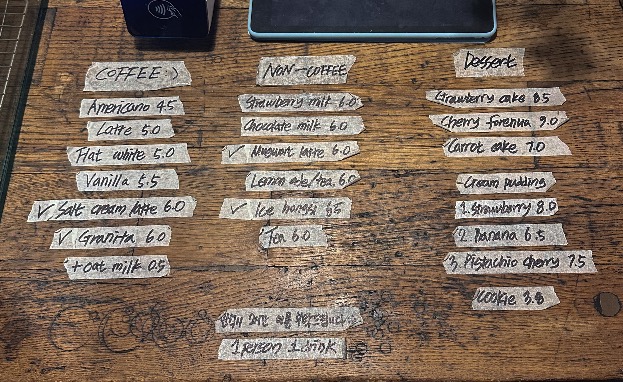 COFFEE
Americano 4.5
Latte 5.0
Flat white 5.0
Vanilla 5.5
✓ Salt cream latte 6.0
✓ Granita 6.0
+ oat milk 0.5
NON-COFFEE
Strawberry milk 6.0
Chocolate milk 6.0
✓ Mugwort latte 6.0
Lemon ade/tea 6.0
✓ Ice hongsi 6.5
Tea 6.0
Dessert
Strawberry cake 8.5
Cherry 9.0
Carrot cake 7.0
Cream pudding
1. Strawberry 8.0
2. Banana 6.5
3. Pistachio cherry 7.5
Cookie 3.8
1 person 1 drink